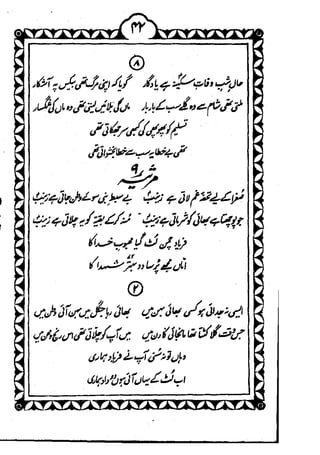 ۴۲
۸
حال شب وفات سکینہ ہے یادگار گویا کہ اپنی مرگ تھی بیکس پہ آشکار
ملتی تھی شام سے وہ گلے سب کے بار بار ماں کی بلائیں لیتی تھی وہ ماں کی غمگسار
تسلیم کو پھوپھی کی کبھی سر جھکاتی تھی
تھی بے خطا پہ سب سے خطا بخشواتی تھی
مرثیہ ۹
صغرا کے لیے تحفۂ غم لاتی ہے زینب بے سبط نبی سوئے وطن جاتی ہے زینب
جو پوچھتا ہے بھائی کو شرماتی ہے زینب منہ کر کے بقیعہ کو یہ چلاتی ہے زینب
فریاد چمن لٹ گیا محبوب خدا کا
اماں مجھے پرسا دو شہدا کا
۲
ایسی نہ جدائی ہو کسی بھائی بہن میں بھائی رہا جنگل میں بہن آئی وطن میں
جس وقت گلا کٹتا تھا ماں جائی کا رن میں میں آپ کو چلاتی تھی اس رنج و محن میں
وہاں تو نہ سنی آپ نے فریاد ہماری
اب لٹ کے یہاں آئی ہوں دو داد ہماری